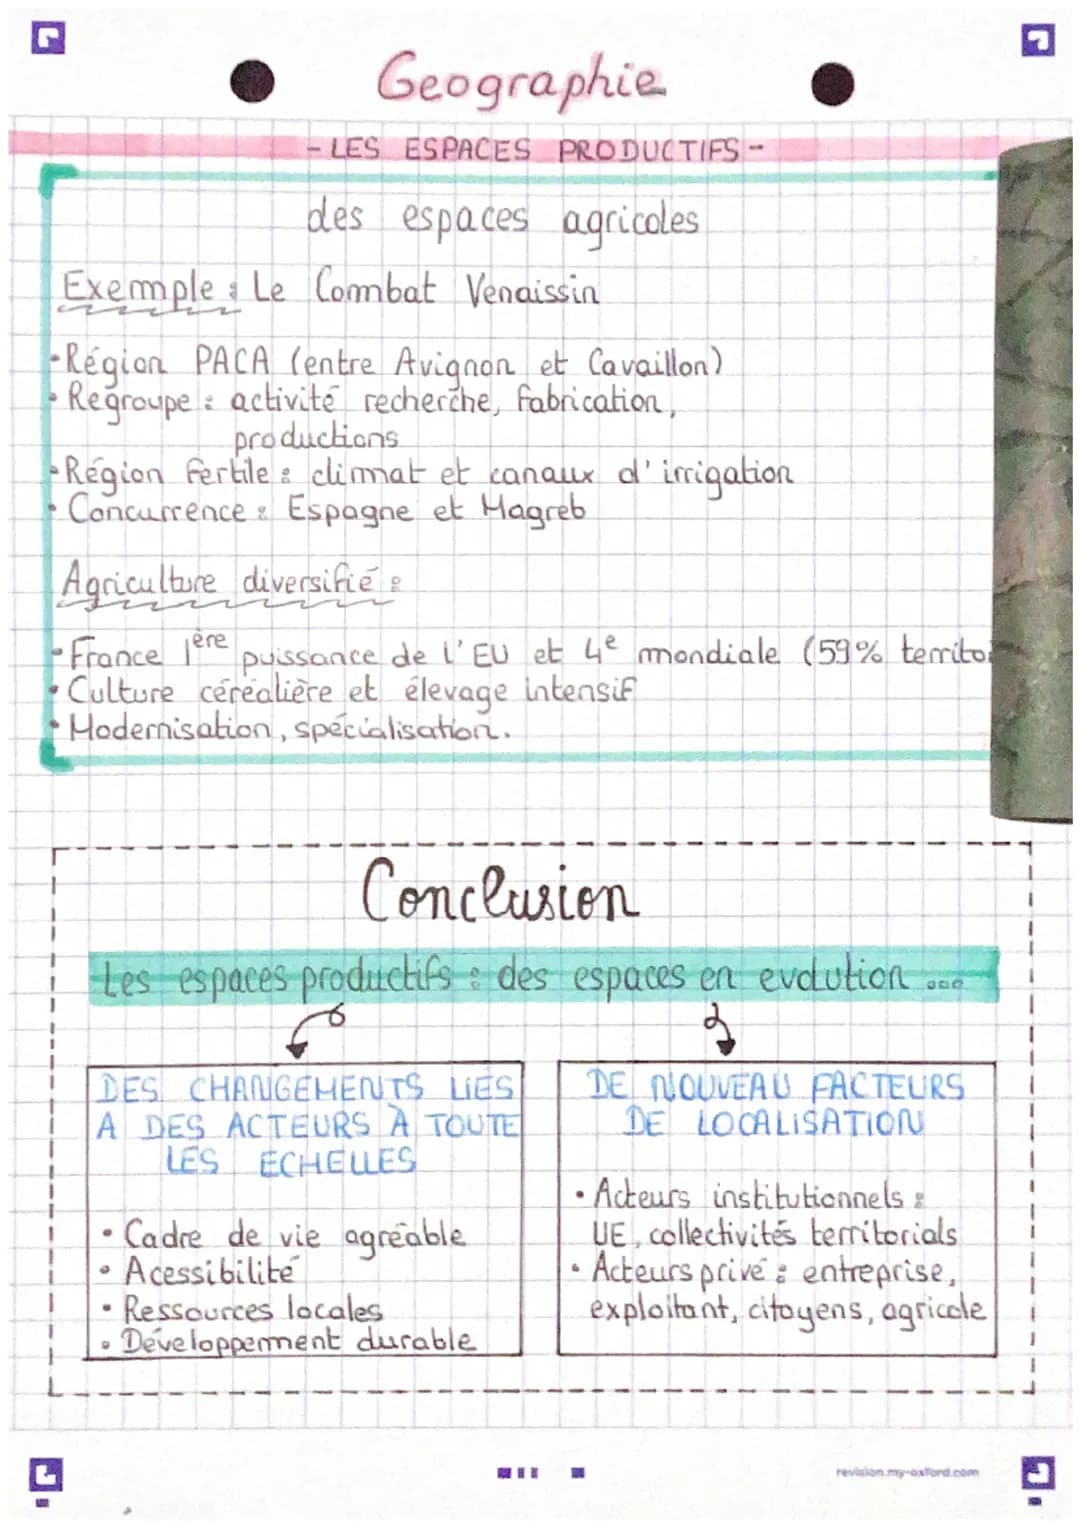 Geographie
- LES ESPACES PRODUCTIFS -
des espaces agricoles
Exemple : Le Combat Venaissin
• Région PACA (entre Avignon et Cavaillon)
• Regroupe : activité recherche, fabrication,
productions
• Région fertile : climat et canaux d'irrigation
• Concurrence : Espagne et Magreb
Agriculture diversifié :
• France 1ère puissance de l'EU et 4e mondiale (59% territoi
• Culture céréalière et élevage intensif
• Modernisation, spécialisation.
Conclusion
Les espaces productifs : des espaces en evolution ...
DES CHANGEMENTS LIÉS
A DES ACTEURS À TOUTE
LES ECHELLES
• Cadre de vie agréable
• Acessibilité
• Ressources locales
• Développement durable
DE NOUVEAU FACTEURS
DE LOCALISATION
• Acteurs institutionnels :
UE, collectivités territorials
• Acteurs privé : entreprise,
exploitant, citoyens, agricole
revision.my-oxford.com